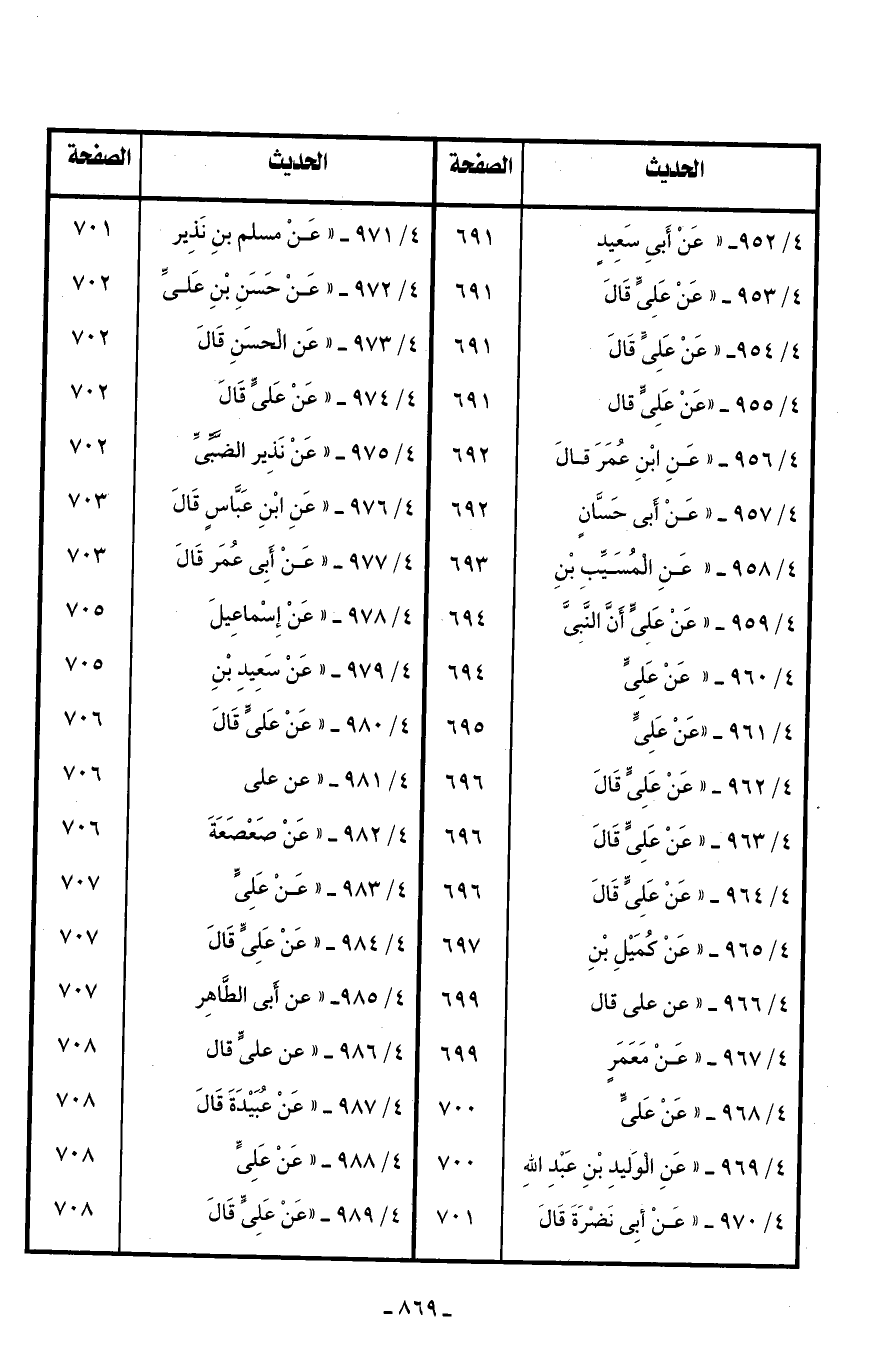 الحديث الصفحة الحديث الصفحة
٤/ ٩٥٢ـ « عَنْ أَبِى سَعِيدٍ ٦٩١ ٤/ ٩٧١ ـ « عَـنْ مسلم بنِ نَذِير ٧٠١
٤/ ٩٥٣ ـ « عَنْ عَلِىٍّ قَالَ ٦٩١ ٤/ ٩٧٢ ـ « عَـنْ حَسَنِ بْنِ عَلـىٍّ ٧٠٢
٤/ ٩٥٤ـ « عَنْ عَلِىٍّ قَالَ ٦٩١ ٤/ ٩٧٣ ـ « عَن الْحسَنِ قَالَ ٧٠٢
٤/ ٩٥٥ ـ «عَنْ عَلِىٍّ قال ٦٩١ ٤/ ٩٧٤ ـ « عَنْ عَلىٍّ قَالَ ٧٠٢
٤/ ٩٥٦ ـ « عَـنِ ابْنِ عُمَرَ قـالَ ٦٩٢ ٤/ ٩٧٥ ـ « عَنْ نَذِير الضَبِّىِّ ٧٠٢
٤/ ٩٥٧ ـ « عَـنْ أَبِى حَسَّانٍ ٦٩٢ ٤/ ٩٧٦ ـ « عَنِ ابْنِ عَبَّاسٍ قَالَ ٧٠٣
٤/ ٩٥٨ ـ « عَـنِ الْمُسَـيِّبِ بْنِ ٦٩٣ ٤/ ٩٧٧ ـ « عَـنْ أَبِى عُمَر قَالَ ٧٠٣
٤/ ٩٥٩ ـ « عَنْ عَلِىٍّ أَنَّ النَّبِىَّ ٦٩٤ ٤/ ٩٧٨ ـ « عَنْ إِسْماعِيلَ ٧٠٥
٤/ ٩٦٠ ـ « عَنْ عَلِىٍّ ٦٩٤ ٤/ ٩٧٩ ـ « عَنْ سَعِيدِ بْنِ ٧٠٥
٤/ ٩٦١ ـ «عَنْ عَلِىٍّ ٦٩٥ ٤/ ٩٨٠ ـ « عَنْ عَلىٍّ قَالَ ٧٠٦
٤/ ٩٦٢ ـ « عَنْ عَلِىٍّ قَالَ ٦٩٦ ٤/ ٩٨١ ـ « عن على ٧٠٦
٤/ ٩٦٣ ـ « عَنْ عَلِىٍّ قَالَ ٦٩٦ ٤/ ٩٨٢ ـ « عَنْ صَعْصَعَةَ ٧٠٦
٤/ ٩٦٤ ـ « عَنْ عَلِىٍّ قَالَ ٦٩٦ ٤/ ٩٨٣ ـ « عَـنْ عَلِىٍّ ٧٠٧
٤/ ٩٦٥ ـ « عَنْ كُمَيْلِ بْنِ ٦٩٧ ٤/ ٩٨٤ ـ « عَنْ عَلِىٍّ قَالَ ٧٠٧
٤/ ٩٦٦ ـ « عن على قال ٦٩٩ ٤/ ٩٨٥ـ « عن أَبى الطَّاهِر ٧٠٧
٤/ ٩٦٧ ـ « عَـنْ مَعَمَرٍ ٦٩٩ ٤/ ٩٨٦ ـ « عن علىٍّ قال ٧٠٨
٤/ ٩٦٨ ـ « عَنْ عَلِىٍّ ٧٠٠ ٤/ ٩٨٧ ـ « عَنْ عُبَيْدَةَ قَالَ ٧٠٨
٤/ ٩٦٩ ـ « عَنِ الْوَلِيدِ بْنِ عَبْدِ اللهِ ٧٠٠ ٤/ ٩٨٨ ـ « عَنْ عَلِىٍّ ٧٠٨
٤/ ٩٧٠ ـ « عَـنْ أَبِى نَضْرَةَ قَالَ ٧٠١ ٤/ ٩٨٩ ـ «عَنْ عَلِىٍّ قَالَ ٧٠٨
ـ ٨٦٩ ـ